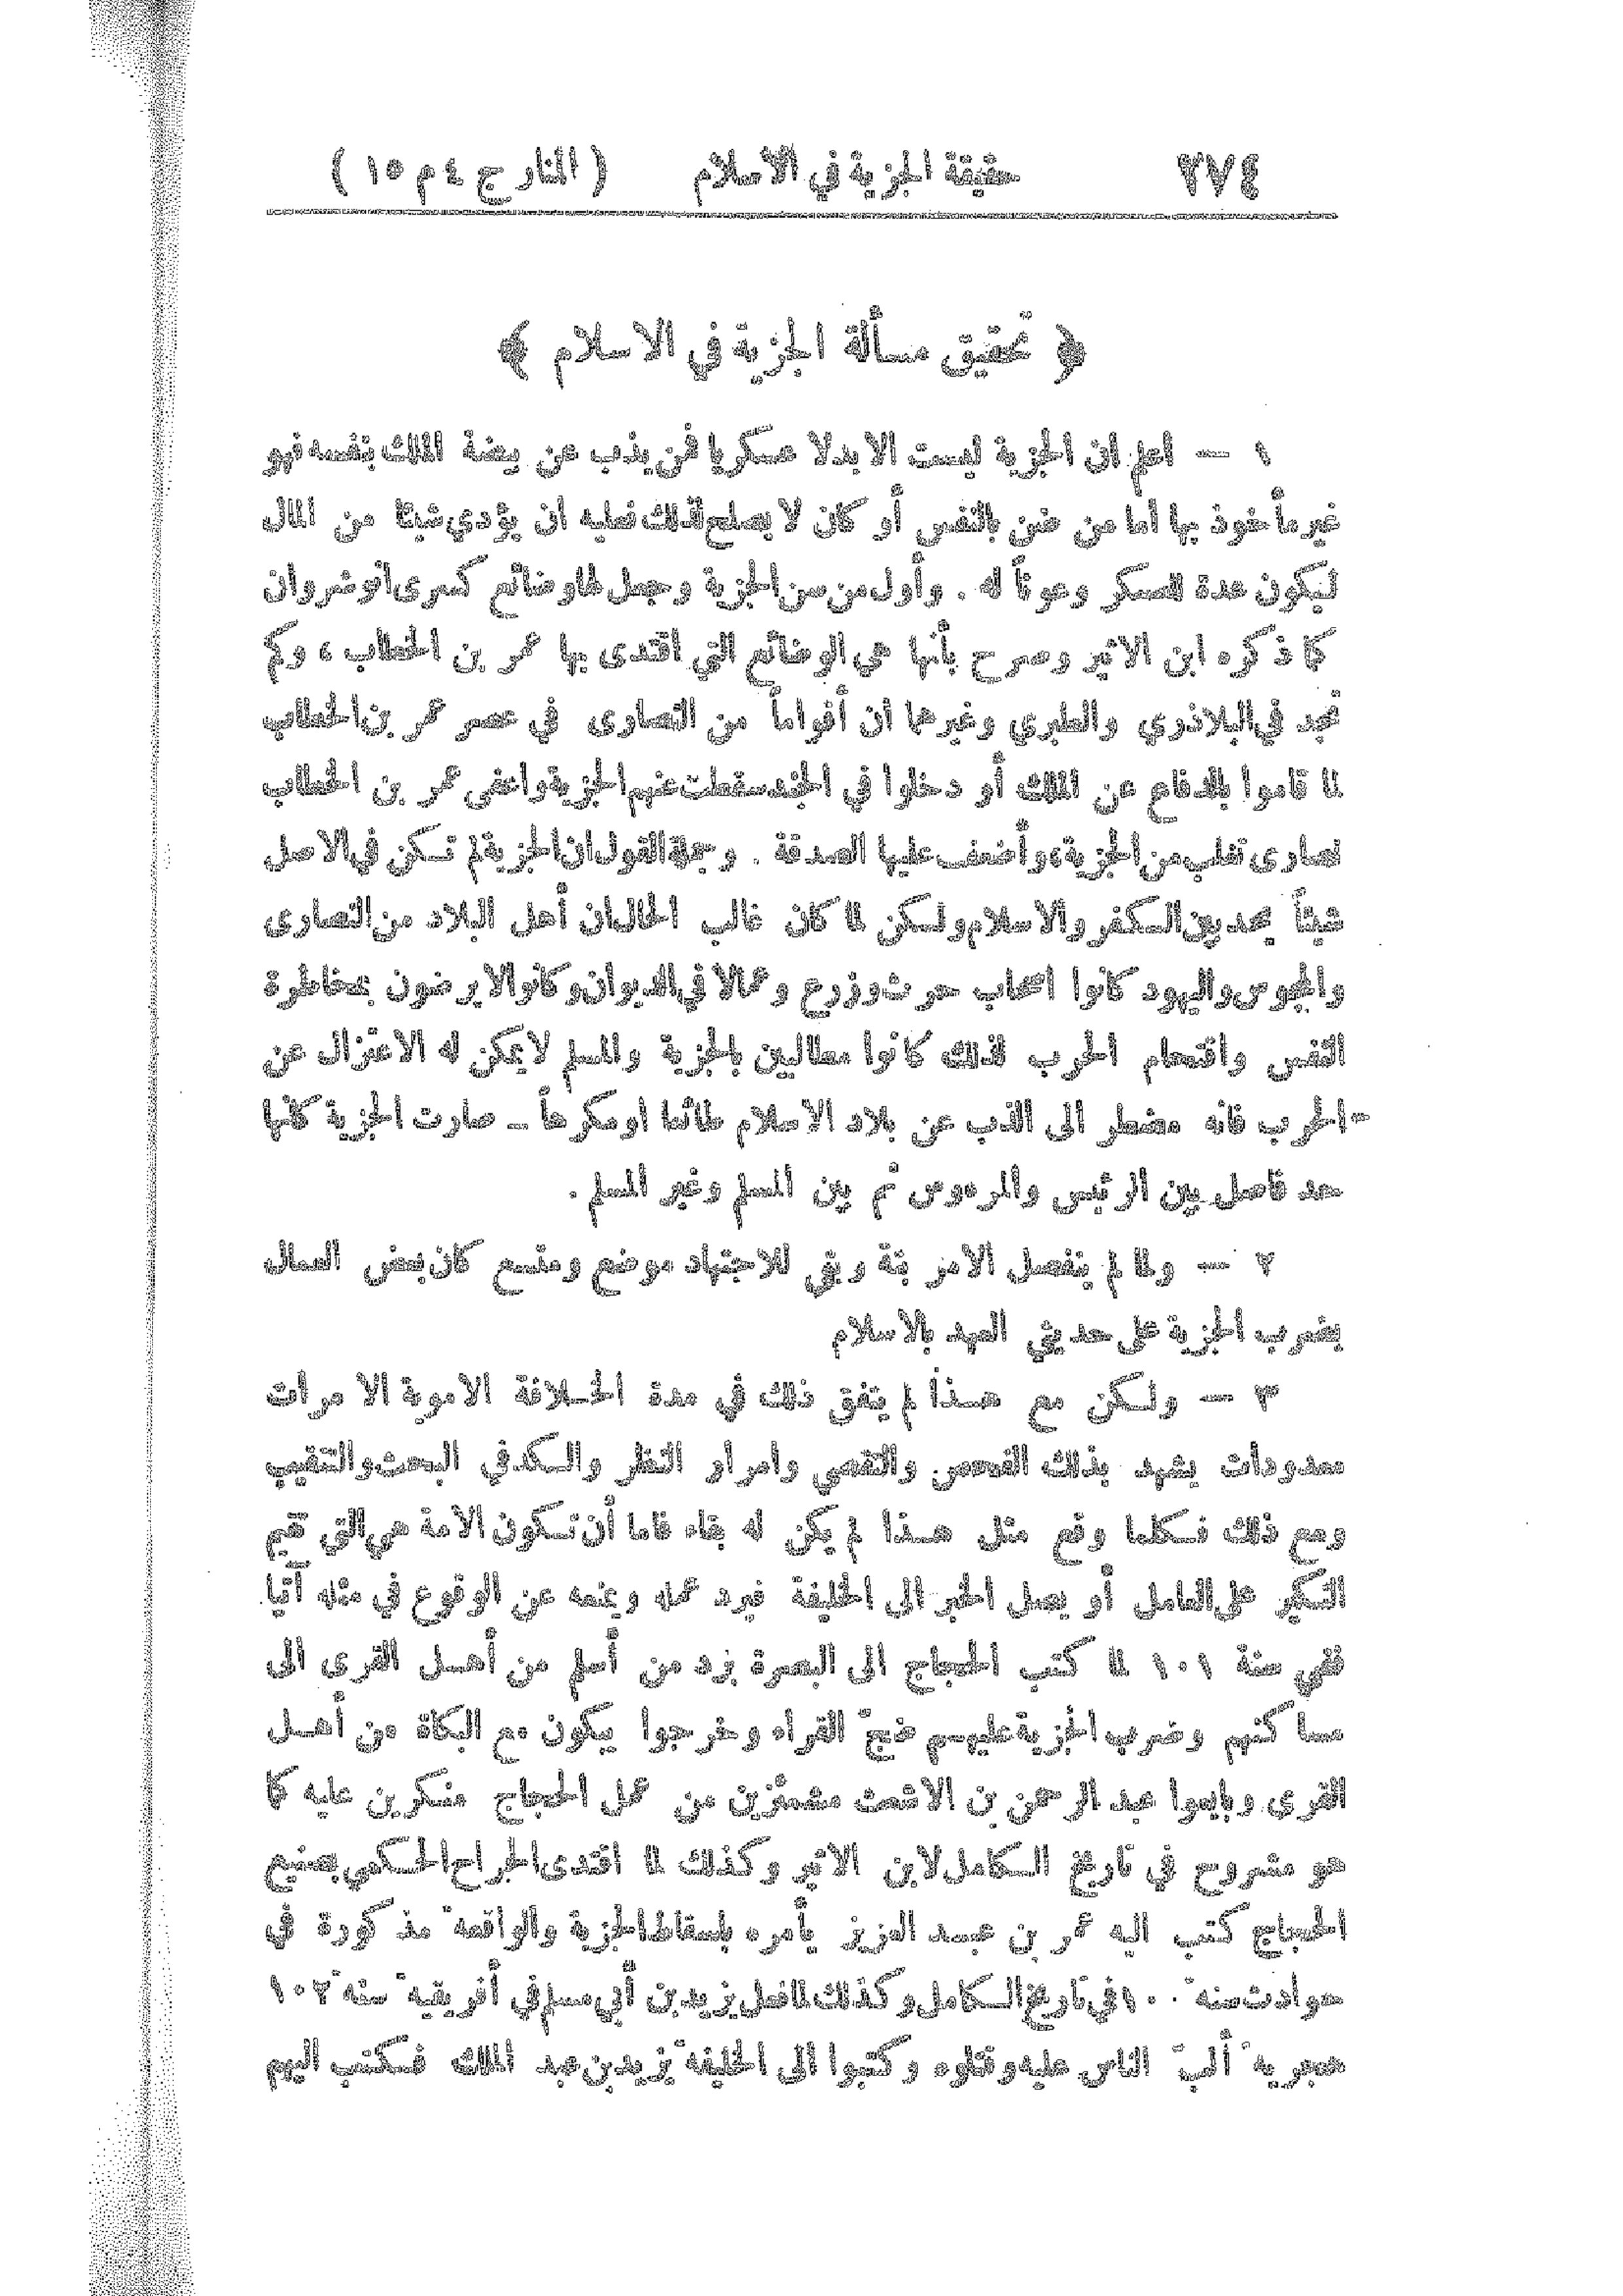 ٢٧٤ حقيقة الجزية في الاسلام ( المنار ج ٤ م ١٥ )
﴿ تحقيق مسألة الجزية في الاسلام ﴾
١ — اعلم ان الجزية ليست الا بدلا عسكريا فمن يذب عن بيضة الملك بنفسه فهو
غير مأخوذ بها أما من ضن بالنفس أو كان لا يصلح لذلك فعليه أن يؤدي شيئا من المال
ليكون عدة للعسكر وعوناً له . وأول من سن الجزية وجعل لها وضائع كسرى انوشروان
كما ذكره ابن الاثير وصرح بأنها هي الوضائع التي اقتدى بها عمر بن الخطاب ، وكم
تجد في البلاذري والطبري وغيرهما أن أقواماً من النصارى في عصر عمر بن الخطاب
لما قاموا بالدفاع عن الملك أو دخلوا في الجند سقطت عنهم الجزية واعفى عمر بن الخطاب
نصارى تغلب من الجزية، وأضعف عليها الصدقة . وجملة القول ان الجزية لم تكن في الاصل
شيئاً يحد بين الكفر والاسلام ولكن لما كان غالب الحال ان أهل البلاد من النصارى
والمجوس واليهود كانوا اصحاب حرث وزرع وعمالا في الديوان وكانوا لا يرضون بمخاطرة
النفس واقتحام الحرب لذلك كانوا مطالبين بالجزية والمسلم لا يمكن له الاعتزال عن
الحرب فانه مضطر الى الذب عن بلاد الاسلام طائعا او مكرهاً ـ صارت الجزية كأنها
حد فاصل بين الرئيس والمرءوس ثم بين المسلم وغير المسلم .
٢ — ولما لم ينفصل الامر بتة وبقي للاجتهاد موضع ومتسع كان بعض العمال
يضرب الجزية على حديثي العهد بالاسلام
٣ — ولكن مع هذا لم يتفق ذلك في مدة الخلافة الاموية الا مرات
معدودات يشهد بذلك الفحص والتقصي وامرار النظر والكد في البحث والتنقيب
ومع ذلك فكلما وقع مثل هذا لم يكن له بقاء فاما أن تكون الامة هي التي تقيم
النكير على العامل أو يصل الخبر الى الخليفة فيرد عمله ويمنعه عن الوقوع في مثله آتيا
ففي سنة ١٠١ لما كتب الحجاج الى البصرة برد من أسلم من أهل القرى الى
مساكنهم وضرب الجزية عليهم ضجّ القراء وخرجوا يبكون مع البكاة من أهل
القرى وبايعوا عبد الرحمن بن الاشعث مشمئزين من عمل الحجاج منكرين عليه كما
هو مشروح في تاريخ الكامل لابن الاثير وكذلك لما اقتدى الجراح الحكمي بصنيع
الحجاج كتب اليه عمر بن عبد العزيز يأمره باسقاط الجزية والواقعة مذكورة في
حوادث سنة ١٠٠ في تاريخ الكامل وكذلك لما فعل يزيد بن أبي مسلم في أفريقية سنة ١٠٢
هجرية ألبّ الناس عليه وقتلوه وكتبوا الى الخليفة يزيد بن عبد الملك فكتب اليهم